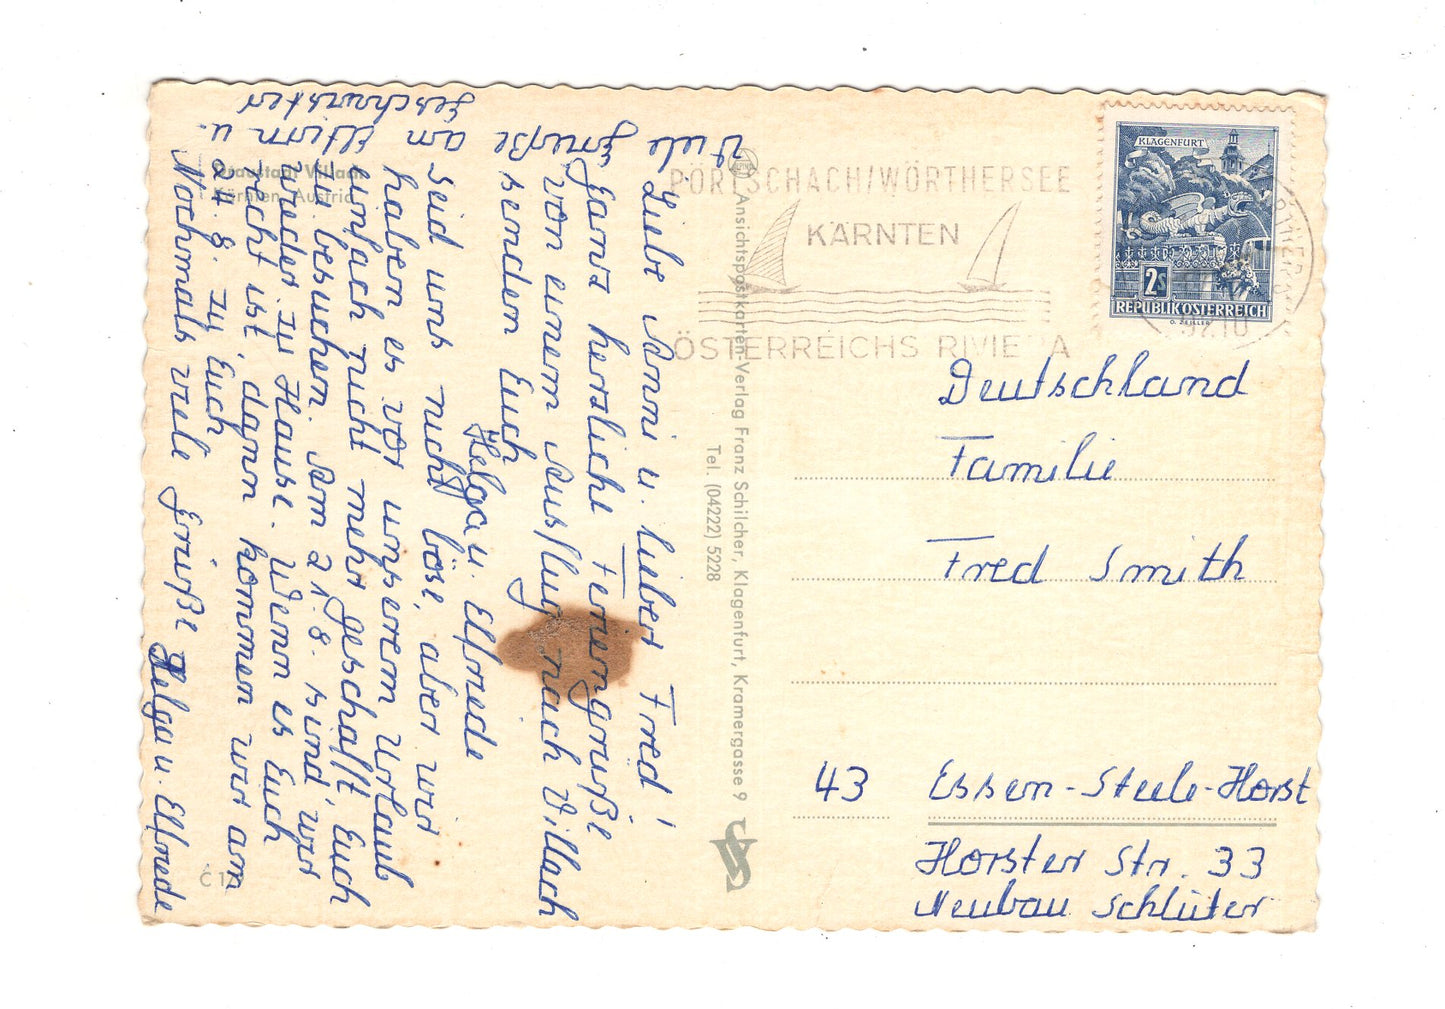 Liebe Anni u. lieber Fred!
Ganz herzliche Feriengrüße
von einem Ausflug nach Villach
senden Euch
Helga u. Elfriede
Seid uns nicht böse, aber wir
haben es vor unserem Urlaub
einfach nicht mehr geschafft Euch
zu besuchen. Am 21.8. sind wir
wieder zu Hause. Wenn es Euch
recht ist, dann kommen wir am
24.8. zu Euch
Nochmals viele Grüße Helga u. Elfriede
Viele Grüße an Eltern u.
Geschwister
Draustadt Villach
Kärnten, Austria
Ansichtspostkarten-Verlag Franz Schilcher, Klagenfurt, Kramergasse 9
Tel. (04222) 5228
PÖRTSCHACH/WÖRTHERSEE
KÄRNTEN
ÖSTERREICHS RIVIERA
KLAGENFURT
2S
REPUBLIK ÖSTERREICH
O. ZEILLER
9210
Deutschland
Familie
Fred Smith
43 Essen-Steele-Horst
Horster Str. 33
Neubau Schlüter